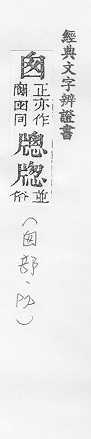 經典文字辨證書
囪
正亦作
窗囱同
牕牎
並
俗
(囱部、)